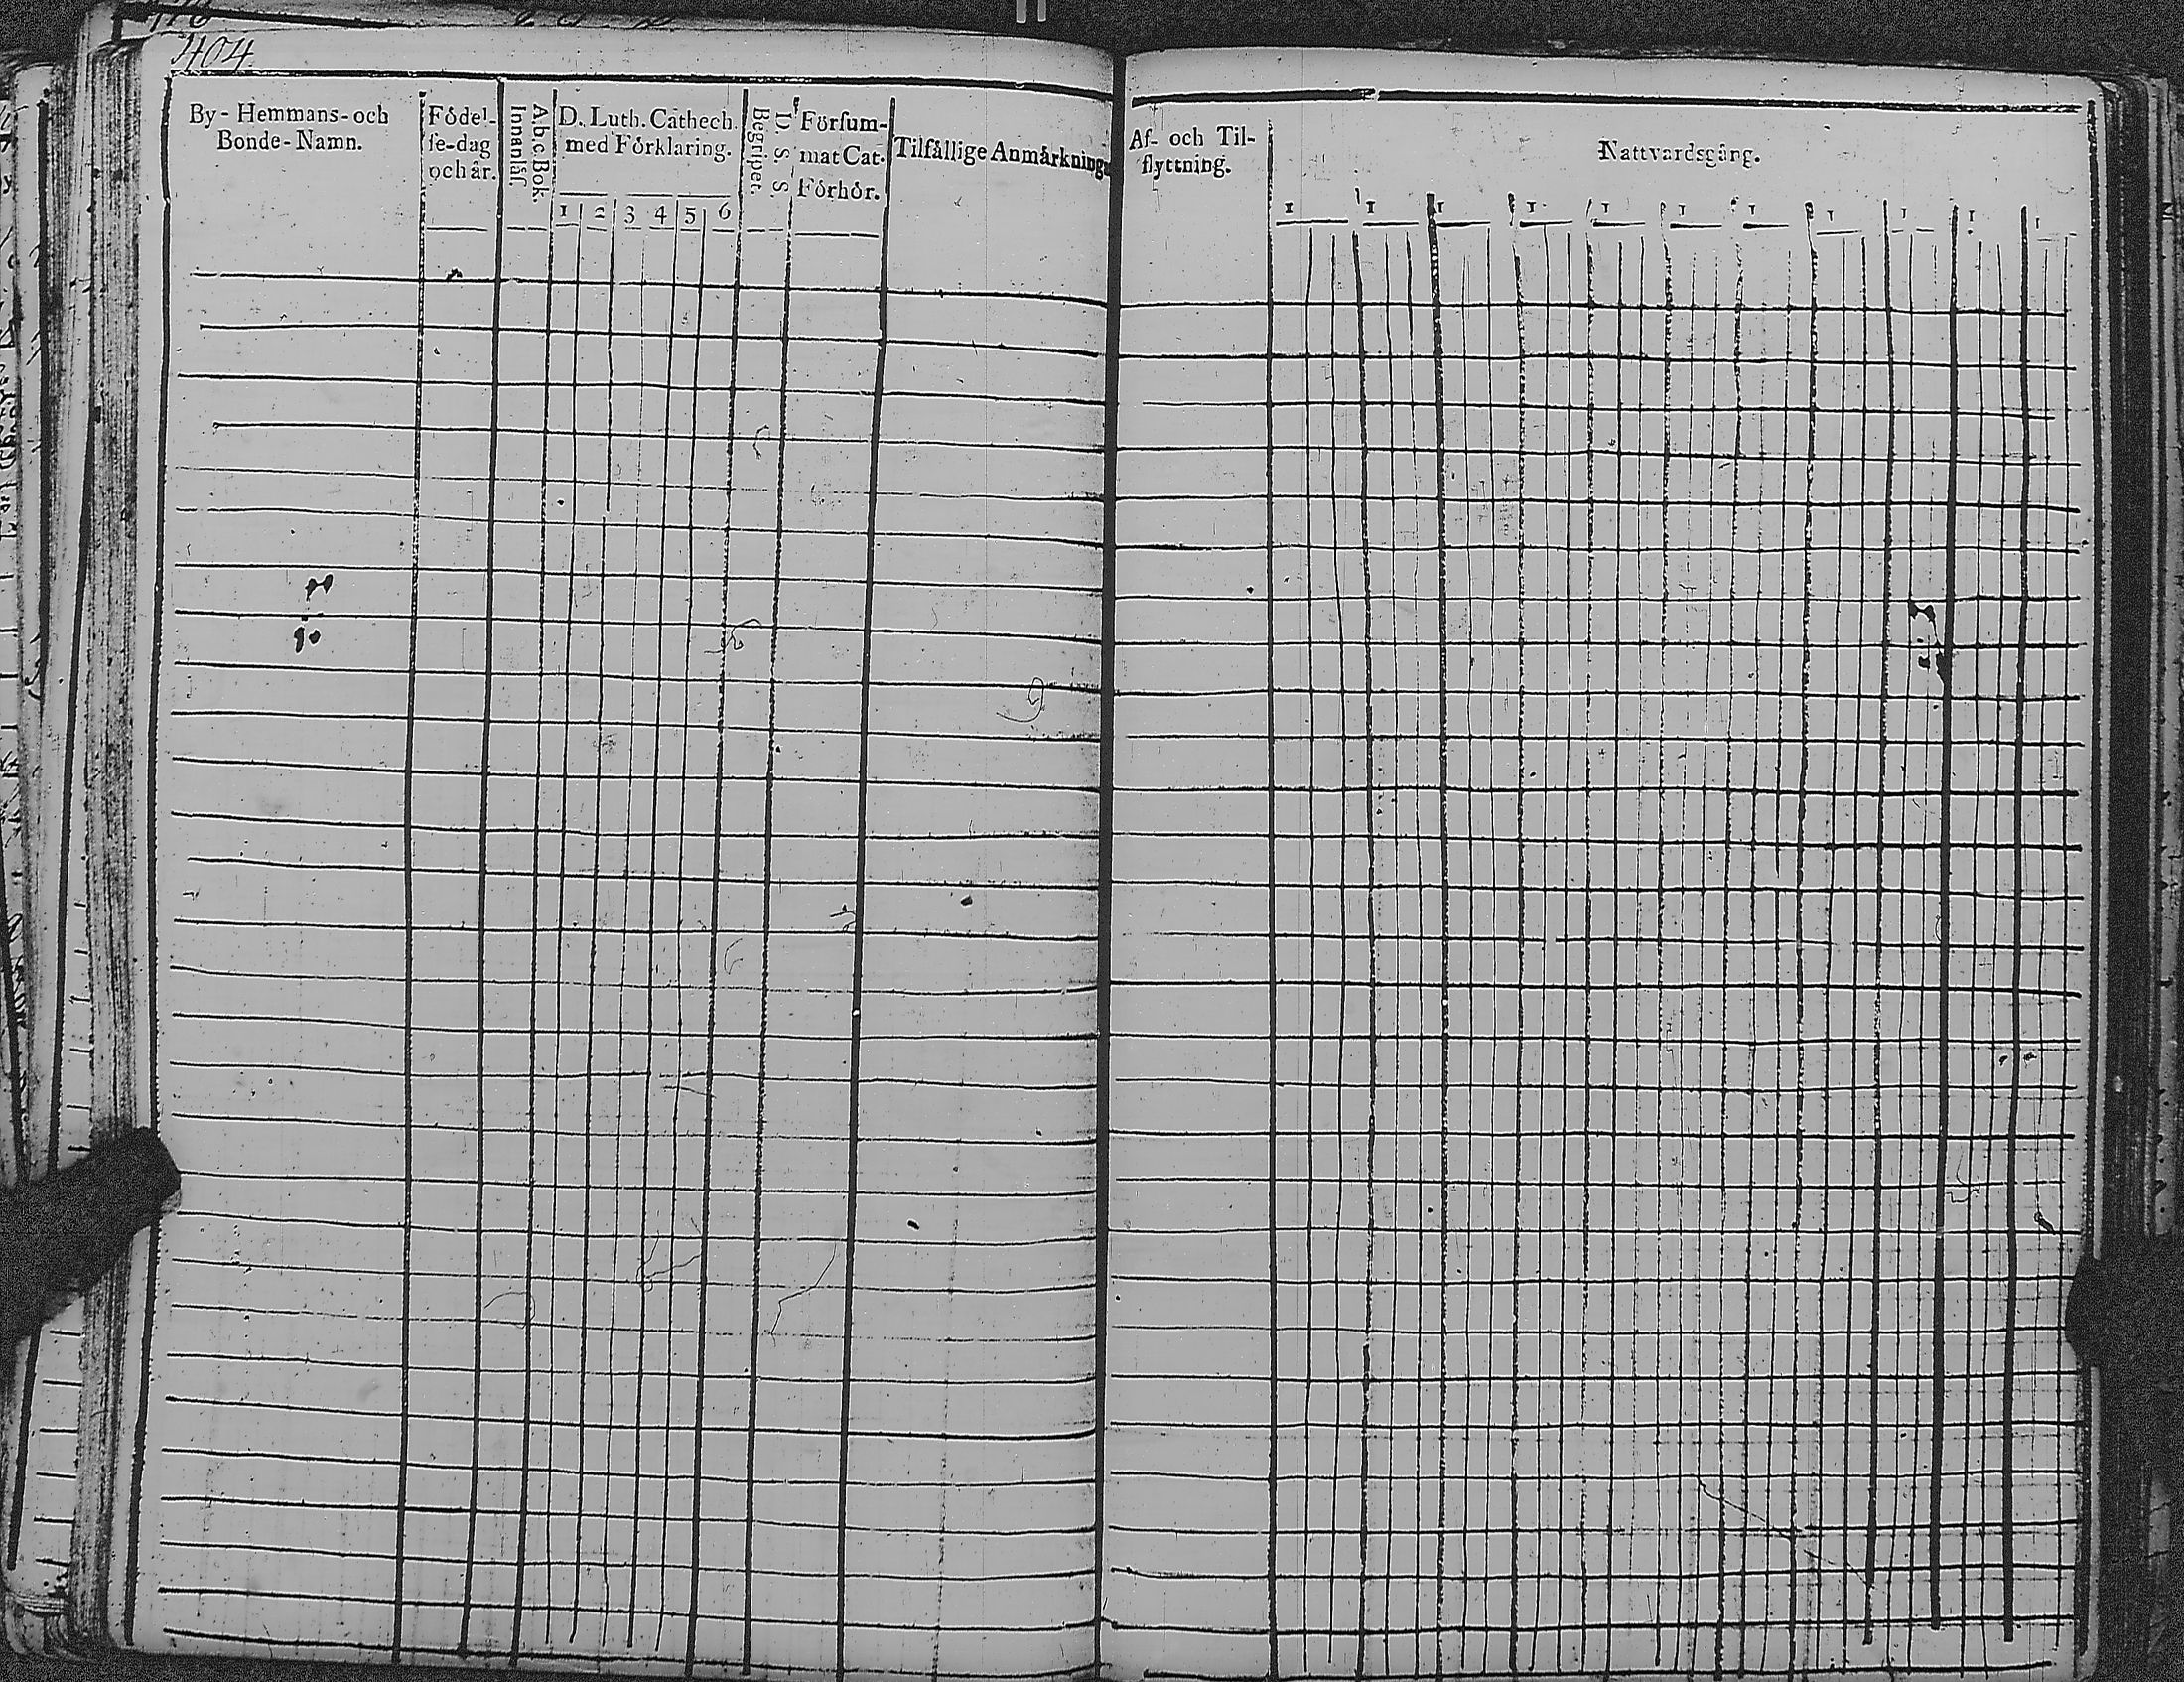 404.
By- Hemmans- och
Bonde-Namn.
Födel-
se-dag
och år.
A.b.c. Bok.
Innanläs.
D. Luth. Cathech.
med Förklaring.
1 2 3 4 5 6
D. S. S.
Begriper.
Försum-
mat Cat.
Förhör.
Tilfällige Anmärkning
Af- och Til-
flyttning.
Nattvardsgång.
1 1 1 1 1 1 1 1 1 1 1